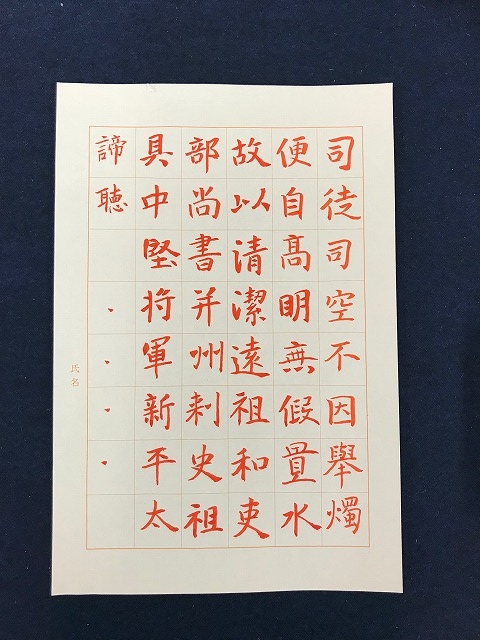 司徒司空不因舉燭
便自高明無假置水
故以清潔遠祖和吏
部尚書并州刺史祖
具中堅将軍新平太
諦聴・・・・
氏名